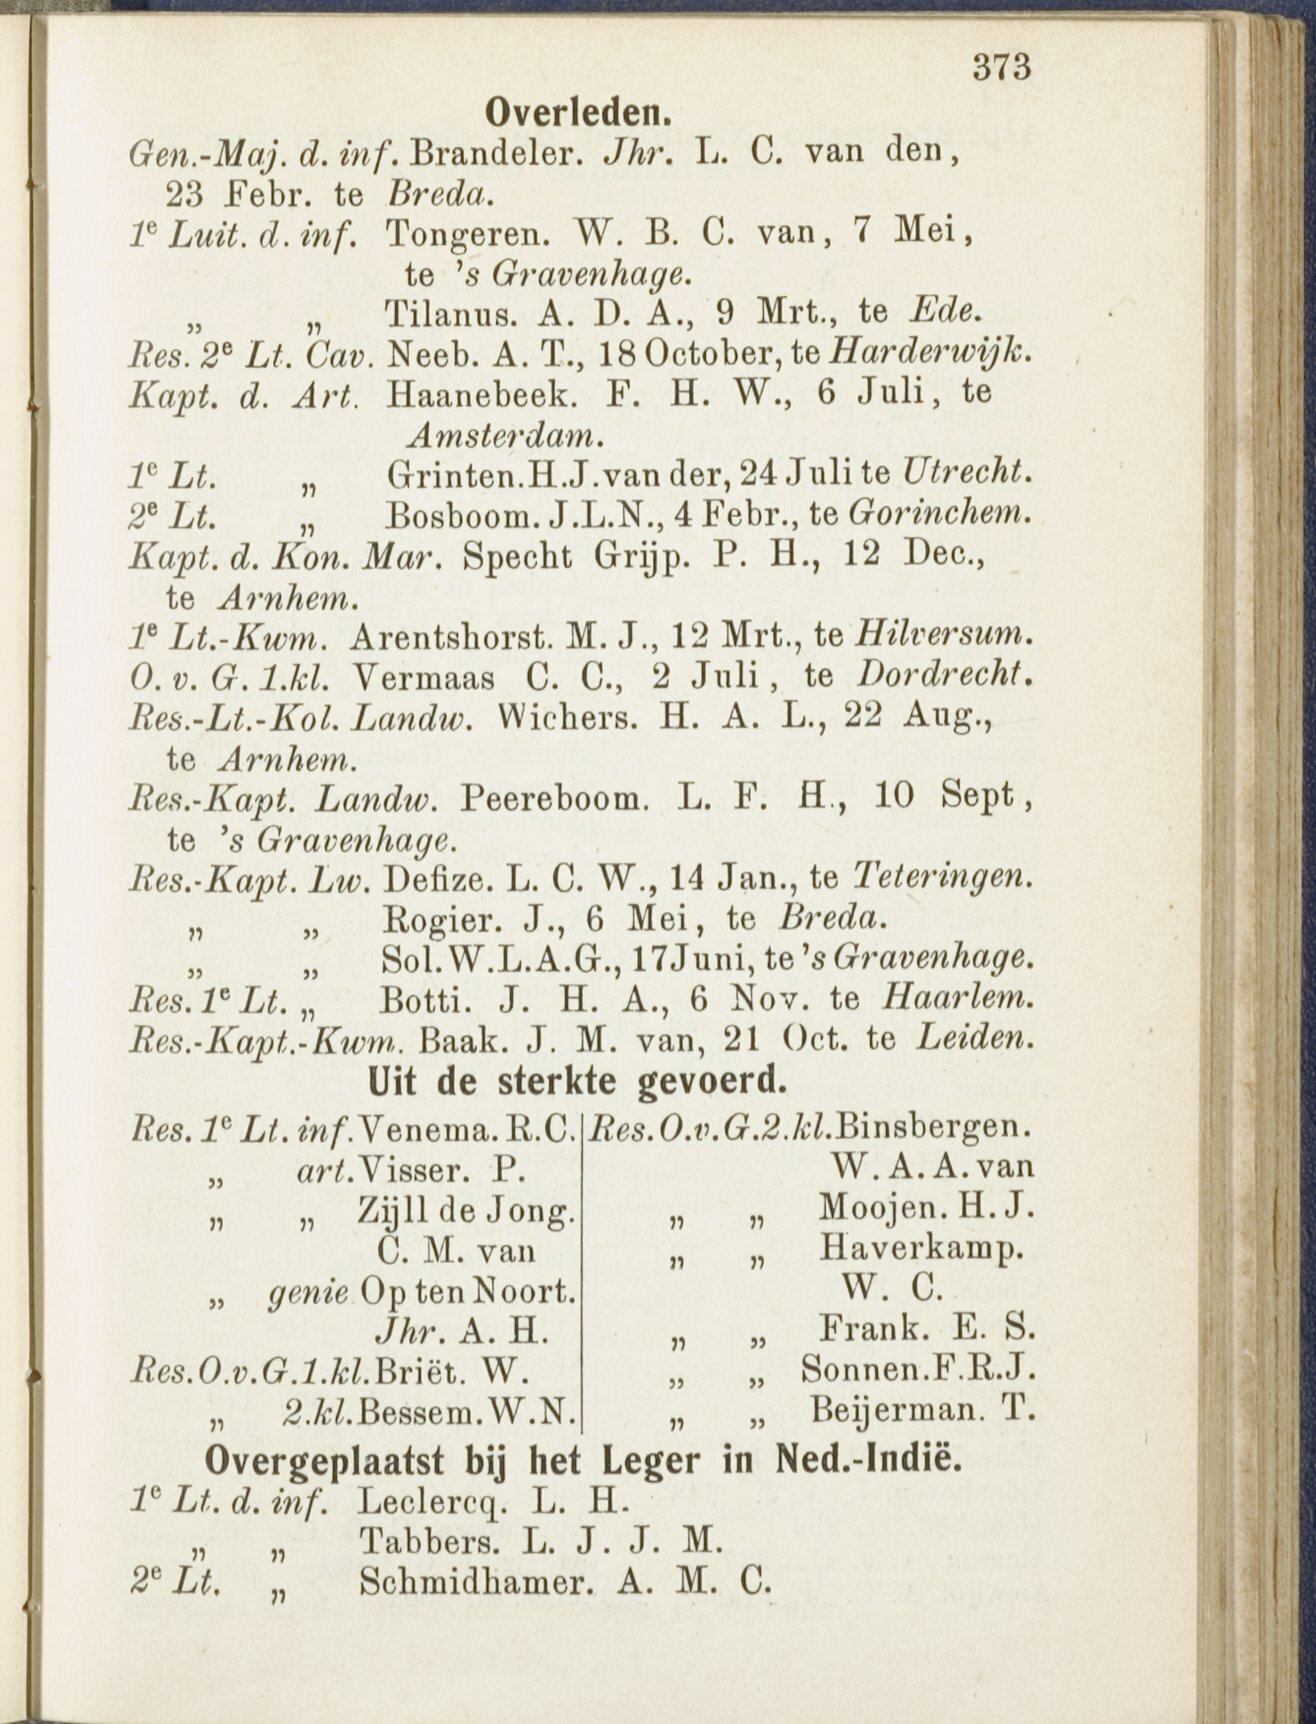 373
Overleden.
Gen.-Maj. d. inf. Brandeler. Jhr. L. C. van den,
23 Febr. te Breda.
1e Luit. d. inf. Tongeren. W. B. C. van, 7 Mei,
te 's Gravenhage.
„ „ Tilanus. A. D. A., 9 Mrt., te Ede.
Res. 2e Lt. Cav. Neeb. A. T., 18 October, te Harderwijk.
Kapt. d. Art. Haanebeek. F. H. W., 6 Juli, te
Amsterdam.
1e Lt. „ Grinten. H.J. van der, 24 Juli te Utrecht.
2e Lt. „ Bosboom. J.L.N., 4 Febr., te Gorinchem.
Kapt. d. Kon. Mar. Specht Grijp. P. H., 12 Dec.,
te Arnhem.
1e Lt.-Kwm. Arentshorst. M. J., 12 Mrt., te Hilversum.
O. v. G. 1.kl. Vermaas C. C., 2 Juli, te Dordrecht.
Res.-Lt.-Kol. Landw. Wichers. H. A. L., 22 Aug.,
te Arnhem.
Res.-Kapt. Landw. Peereboom. L. F. H., 10 Sept,
te 's Gravenhage.
Res.-Kapt. Lw. Defize. L. C. W., 14 Jan., te Teteringen.
„ „ Rogier. J., 6 Mei, te Breda.
„ „ Sol. W.L.A.G., 17 Juni, te 's Gravenhage.
Res. 1e Lt. „ Botti. J. H. A., 6 Nov. te Haarlem.
Res.-Kapt.-Kwm. Baak. J. M. van, 21 Oct. te Leiden.
Uit de sterkte gevoerd.
Res. 1e Lt. inf. Venema. R.C.
„ art. Visser. P.
„ „ Zijll de Jong.
C. M. van
„ genie Op ten Noort.
Jhr. A. H.
Res.O.v.G.1.kl. Briët. W.
„ 2.kl. Bessem. W.N.
Res.O.v.G.2.kl. Binsbergen.
W. A. A. van
„ „ Moojen. H. J.
„ „ Haverkamp.
W. C.
„ „ Frank. E. S.
„ „ Sonnen. F.R.J.
„ „ Beijerman. T.
Overgeplaatst bij het Leger in Ned.-Indië.
1e Lt. d. inf. Leclercq. L. H.
„ „ Tabbers. L. J. J. M.
2e Lt. „ Schmidhamer. A. M. C.